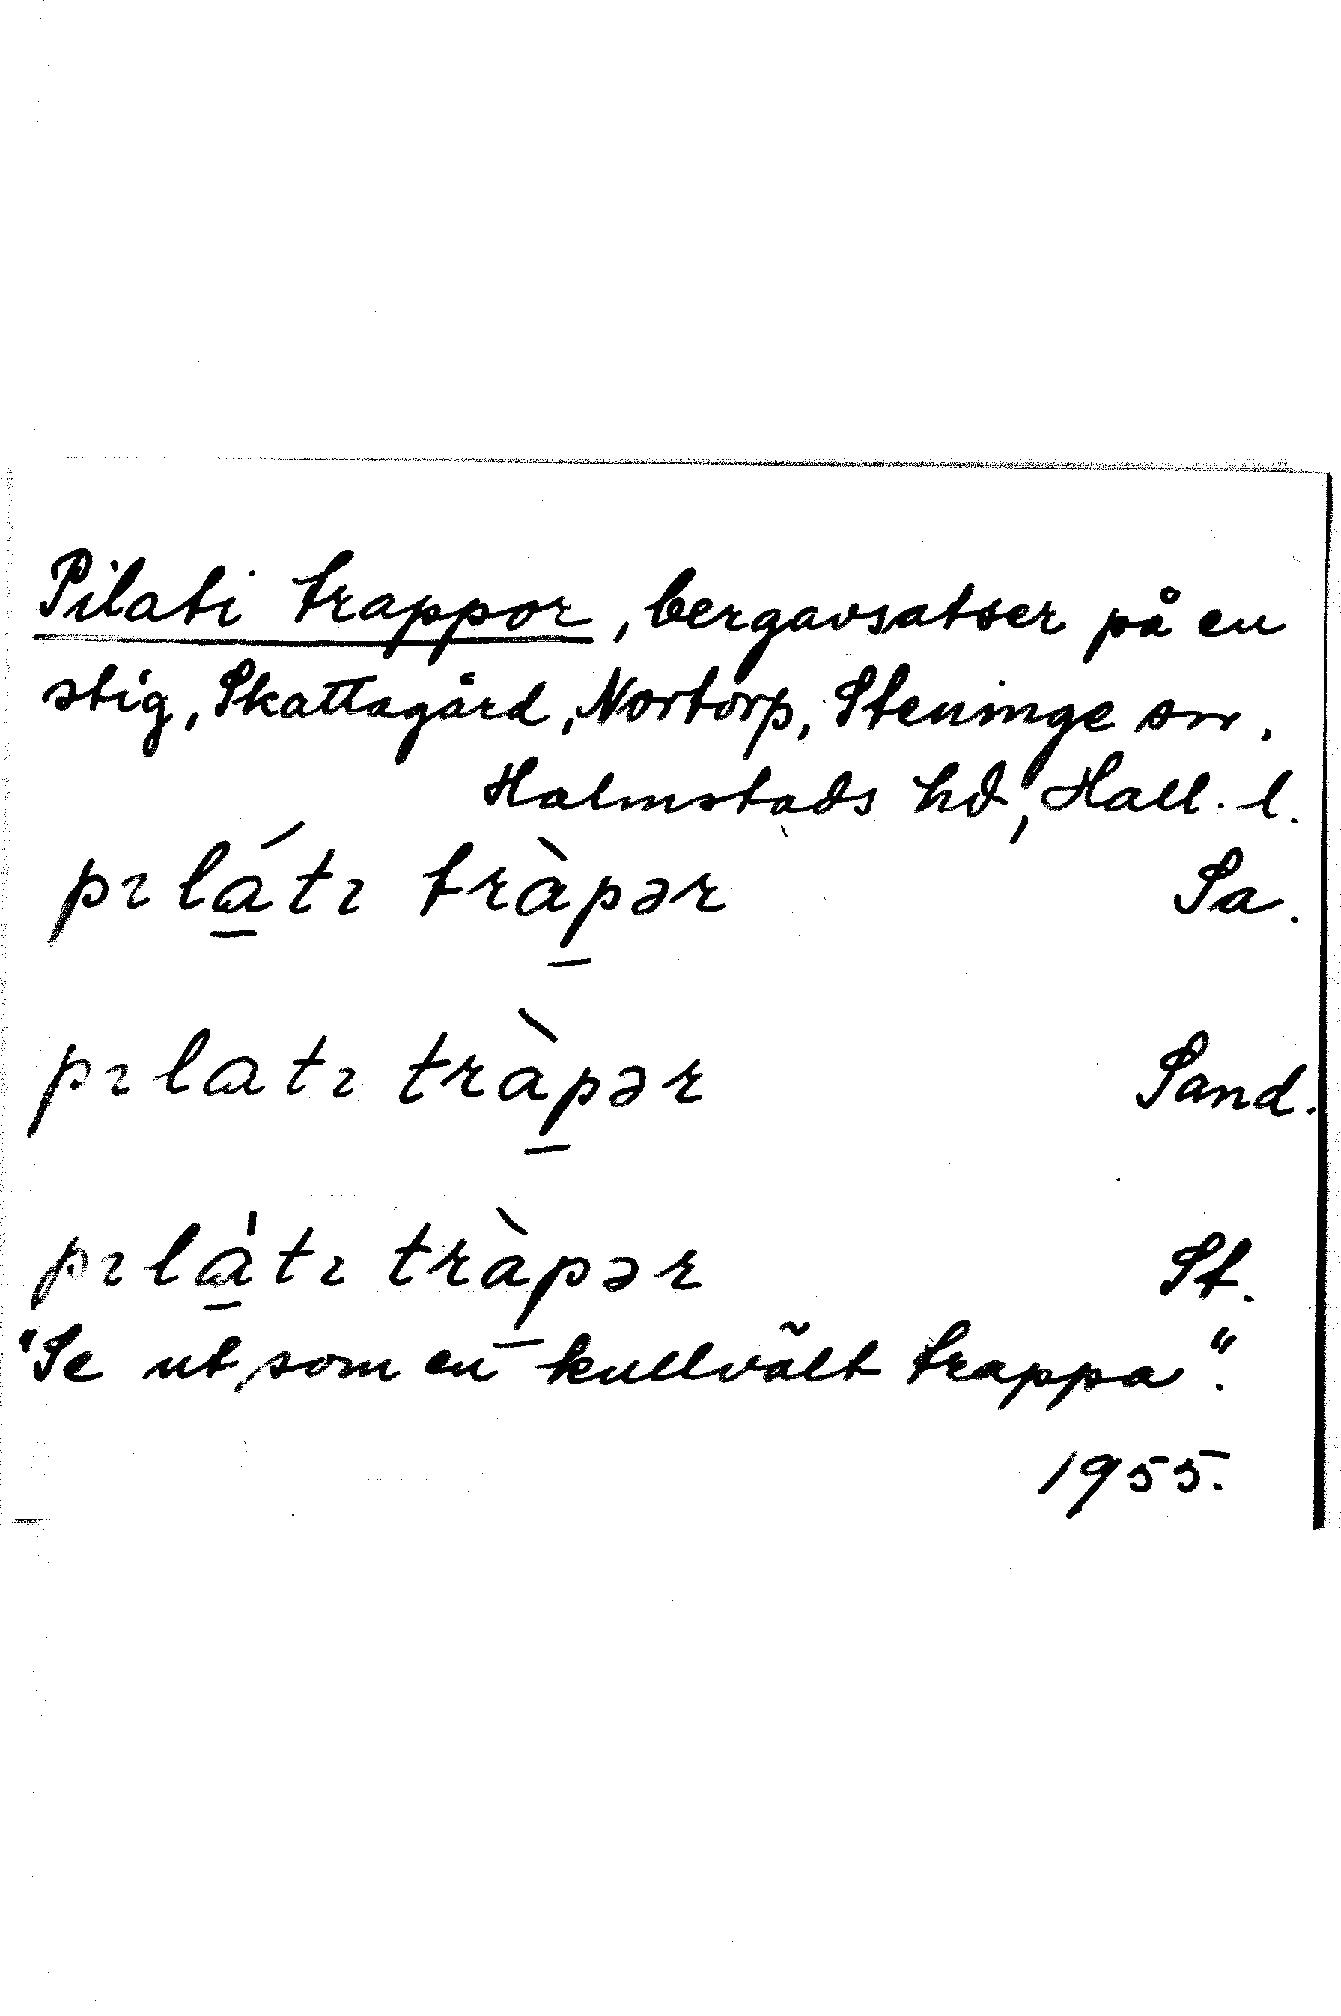 Pilati trappor, bergavsatser på en
stig, Skattagård, Nortorp, Steninge sn.
Halmstads hd, Hall. l.
pɪlá̱tɪ tràp̱ər Sa.
pɪlatɪ tràp̱ər Sand.
pɪla̱̍tɪ tràp̱ər St.
"Se ut, som en kullvält trappa".
1955.